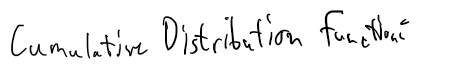 Cumulative Distribution Functions